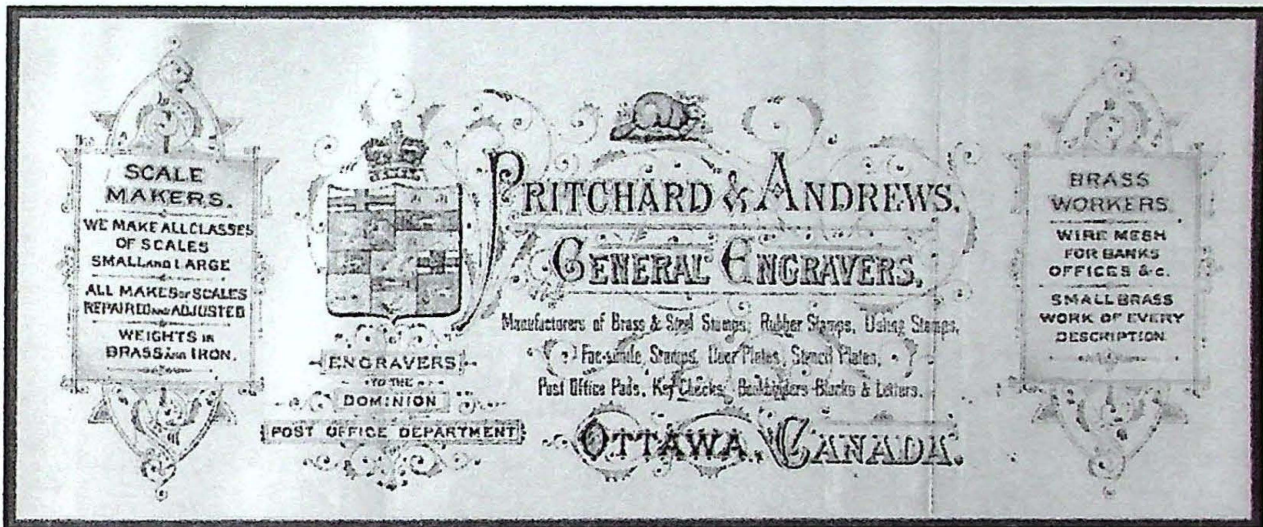 SCALE
MAKERS.
WE MAKE ALL CLASSES
OF SCALES
SMALL AND LARGE
ALL MAKES OF SCALES
REPAIRED AND ADJUSTED
WEIGHTS IN
BRASS AND IRON.
ENGRAVERS
TO THE
DOMINION
POST OFFICE DEPARTMENT
PRITCHARD & ANDREWS.
GENERAL ENGRAVERS.
Manufacturers of Brass & Steel Stamps, Rubber Stamps, Dating Stamps,
Fac-simile, Stamps, Door Plates, Stencil Plates,
Post Office Pads, Key Checks, Bookbinders Blocks & Letters.
OTTAWA, CANADA.
BRASS
WORKERS.
WIRE MESH
FOR BANKS
OFFICES &c.
SMALL BRASS
WORK OF EVERY
DESCRIPTION